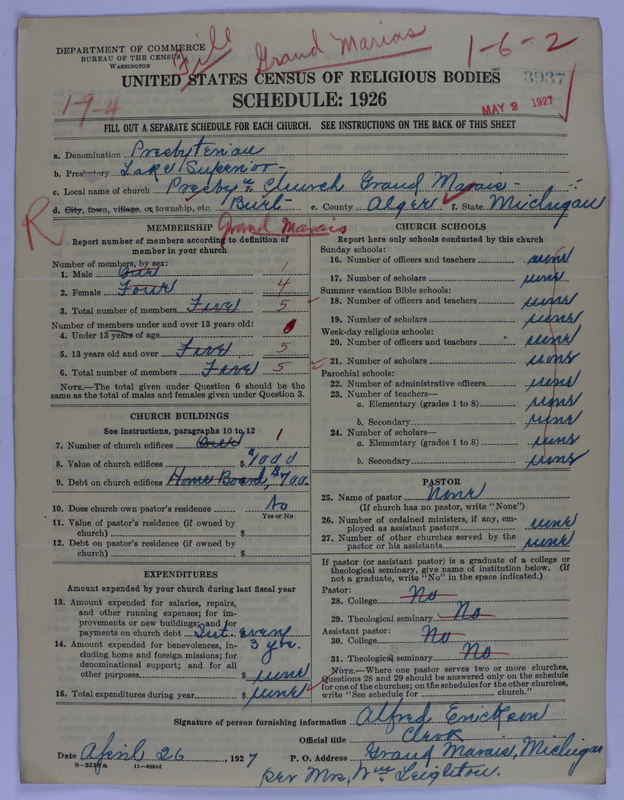 Fill Grand Marais 1-6-2
DEPARTMENT OF COMMERCE
BUREAU OF THE CENSUS
WASHINGTON
UNITED STATES CENSUS OF RELIGIOUS BODIES
3937
1-9-4
SCHEDULE: 1926
MAY 2 1927
FILL OUT A SEPARATE SCHEDULE FOR EACH CHURCH. SEE INSTRUCTIONS ON THE BACK OF THIS SHEET
a. Denomination Presbyterian
b. Presbytery Lake Superior -
c. Local name of church Presby Church Grand Marais -
d. City, town, village, or township, etc. Burt- e. County Alger f. State Michigan
R
Grand Marais
MEMBERSHIP
Report number of members according to definition of member in your church
Number of members, by sex:
1. Male One 1
2. Female Four 4
3. Total number of members Five 5
Number of members under and over 13 years old:
4. Under 13 years of age 0
5. 13 years old and over Five 5
6. Total number of members Five 5
NOTE.—The total given under Question 6 should be the
same as the total of males and females given under Question 3.
CHURCH BUILDINGS
See instructions, paragraphs 10 to 12
7. Number of church edifices 1
8. Value of church edifices $1000
9. Debt on church edifices Home Board, $700.
10. Does church own pastor's residence No
Yes or No
11. Value of pastor's residence (if owned by
church) $
12. Debt on pastor's residence (if owned by
church) $
EXPENDITURES
Amount expended by your church during last fiscal year
13. Amount expended for salaries, repairs,
and other running expenses; for im-
provements or new buildings; and for
payments on church debt
3 yrs.
14. Amount expended for benevolences, in-
cluding home and foreign missions; for
denominational support; and for all
other purposes $ none
15. Total expenditures during year $ none
CHURCH SCHOOLS
Report here only schools conducted by this church
Sunday schools:
16. Number of officers and teachers none
17. Number of scholars none
Summer vacation Bible schools:
18. Number of officers and teachers none
19. Number of scholars none
Week-day religious schools:
20. Number of officers and teachers none
21. Number of scholars none
Parochial schools:
22. Number of administrative officers none
23. Number of teachers—
a. Elementary (grades 1 to 8) none
b. Secondary none
24. Number of scholars—
a. Elementary (grades 1 to 8) none
b. Secondary none
PASTOR
25. Name of pastor None
(If church has no pastor, write "None")
26. Number of ordained ministers, if any, em-
ployed as assistant pastors none
27. Number of other churches served by the
pastor or his assistants none
If pastor (or assistant pastor) is a graduate of a college or
theological seminary, give name of institution below. (If
not a graduate, write "No" in the space indicated.)
Pastor:
28. College No
29. Theological seminary No
Assistant pastor:
30. College No
31. Theological seminary No
NOTE.—Where one pastor serves two or more churches,
Questions 28 and 29 should be answered only on the schedule
for one of the churches; on the schedules for the other churches,
write "See schedule for church."
Signature of person furnishing information Alfred Erickson
Official title Clerk
Date April 26, 1927 P. O. Address Grand Marais, Michigan
per Mrs, Wm Leighton.